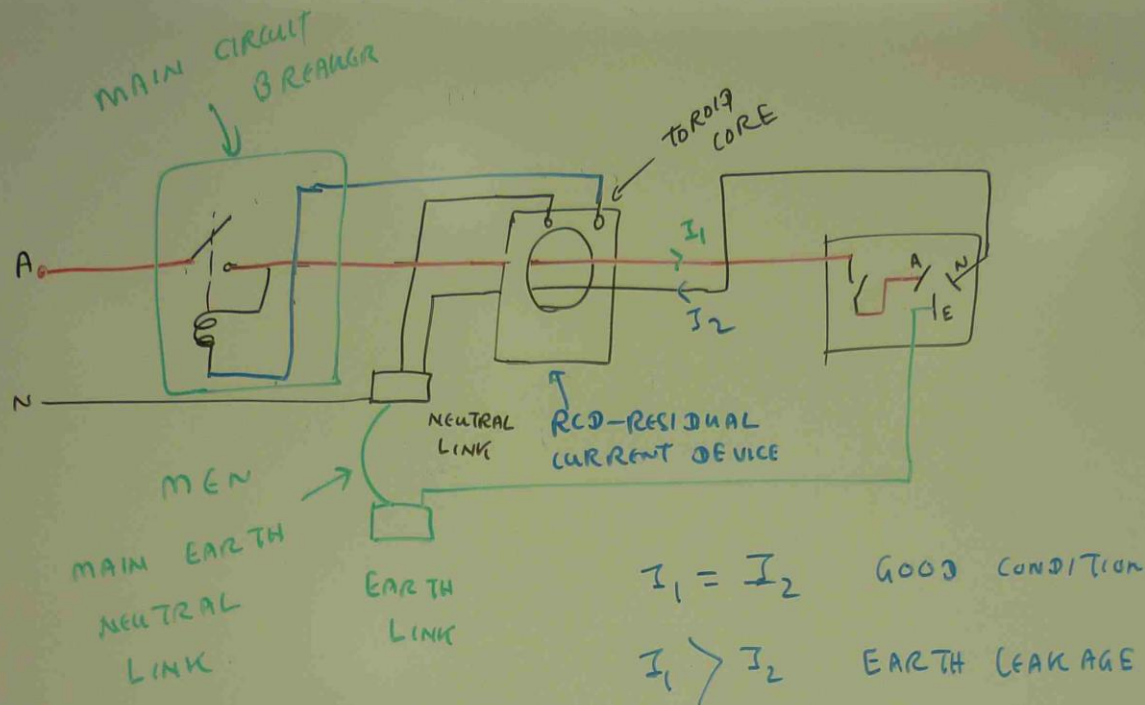 MAIN CIRCUIT
BREAKER
TOROID
CORE
A
I₁
I₂
A
N
E
N
NEUTRAL
LINK
RCD-RESIDUAL
CURRENT DEVICE
MEN
MAIN EARTH
NEUTRAL
LINK
EARTH
LINK
I₁ = I₂ GOOD CONDITION
I₁ > I₂ EARTH LEAKAGE